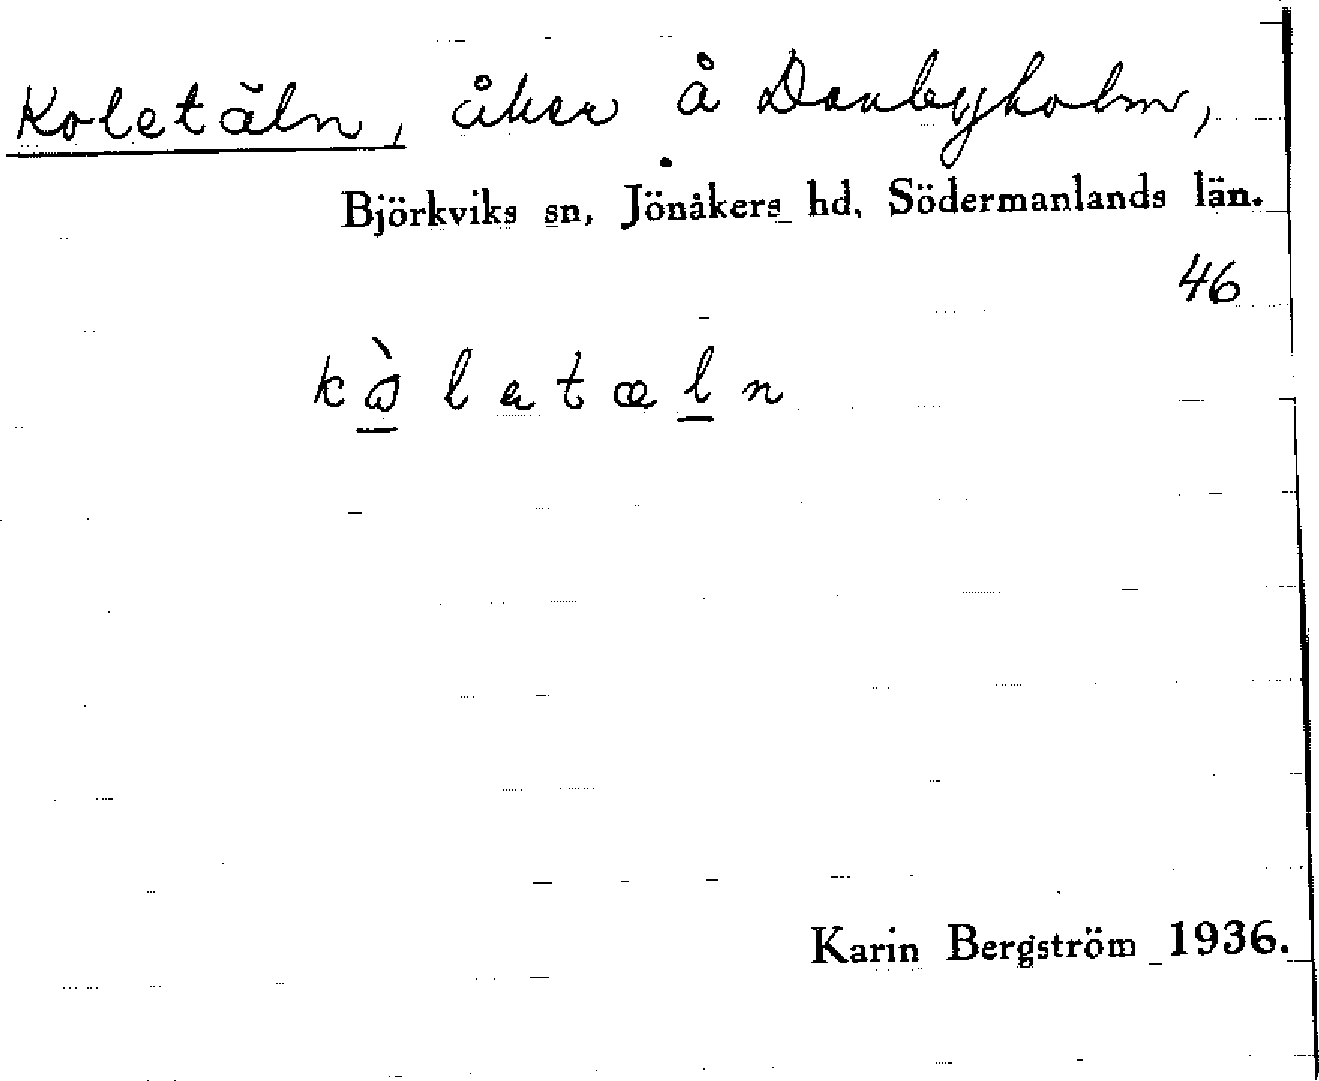 Koletäln, åker å Danbyholm,
Björkviks sn, Jönåkers hd, Södermanlands län.
46
Karin Bergström 1936.